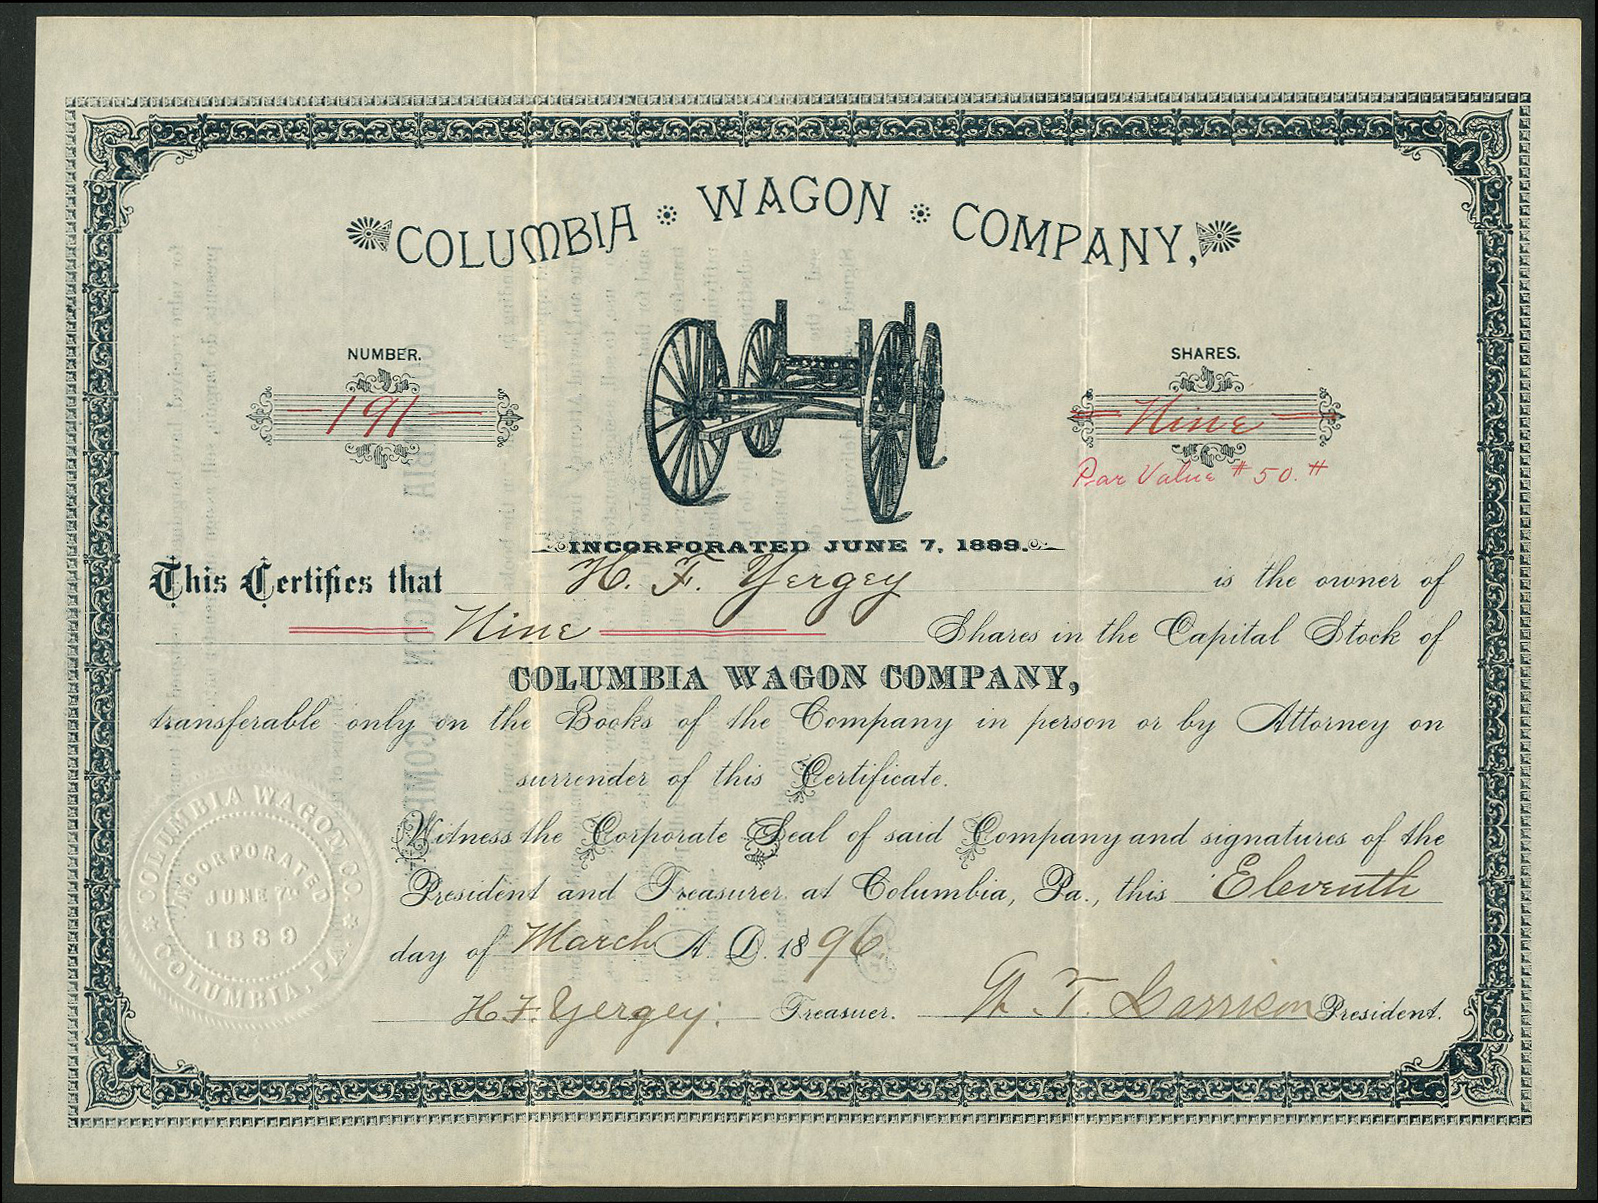 COLUMBIA WAGON COMPANY,
NUMBER.
191
SHARES.
Nine
Par Value $50.#
INCORPORATED JUNE 7, 1889.
This Certifies that H. F. Yergey is the owner of
Nine Shares in the Capital Stock of
COLUMBIA WAGON COMPANY,
transferable only on the Books of the Company in person or by Attorney on
surrender of this Certificate.
Witness the Corporate Seal of said Company and signatures of the
President and Treasurer at Columbia, Pa., this Eleventh
day of March A. D. 1896
H. F. Yergey. Treasurer. T. Garrison President.
COLUMBIA WAGON CO.
INCORPORATED
JUNE 7th
1889
COLUMBIA, PA.